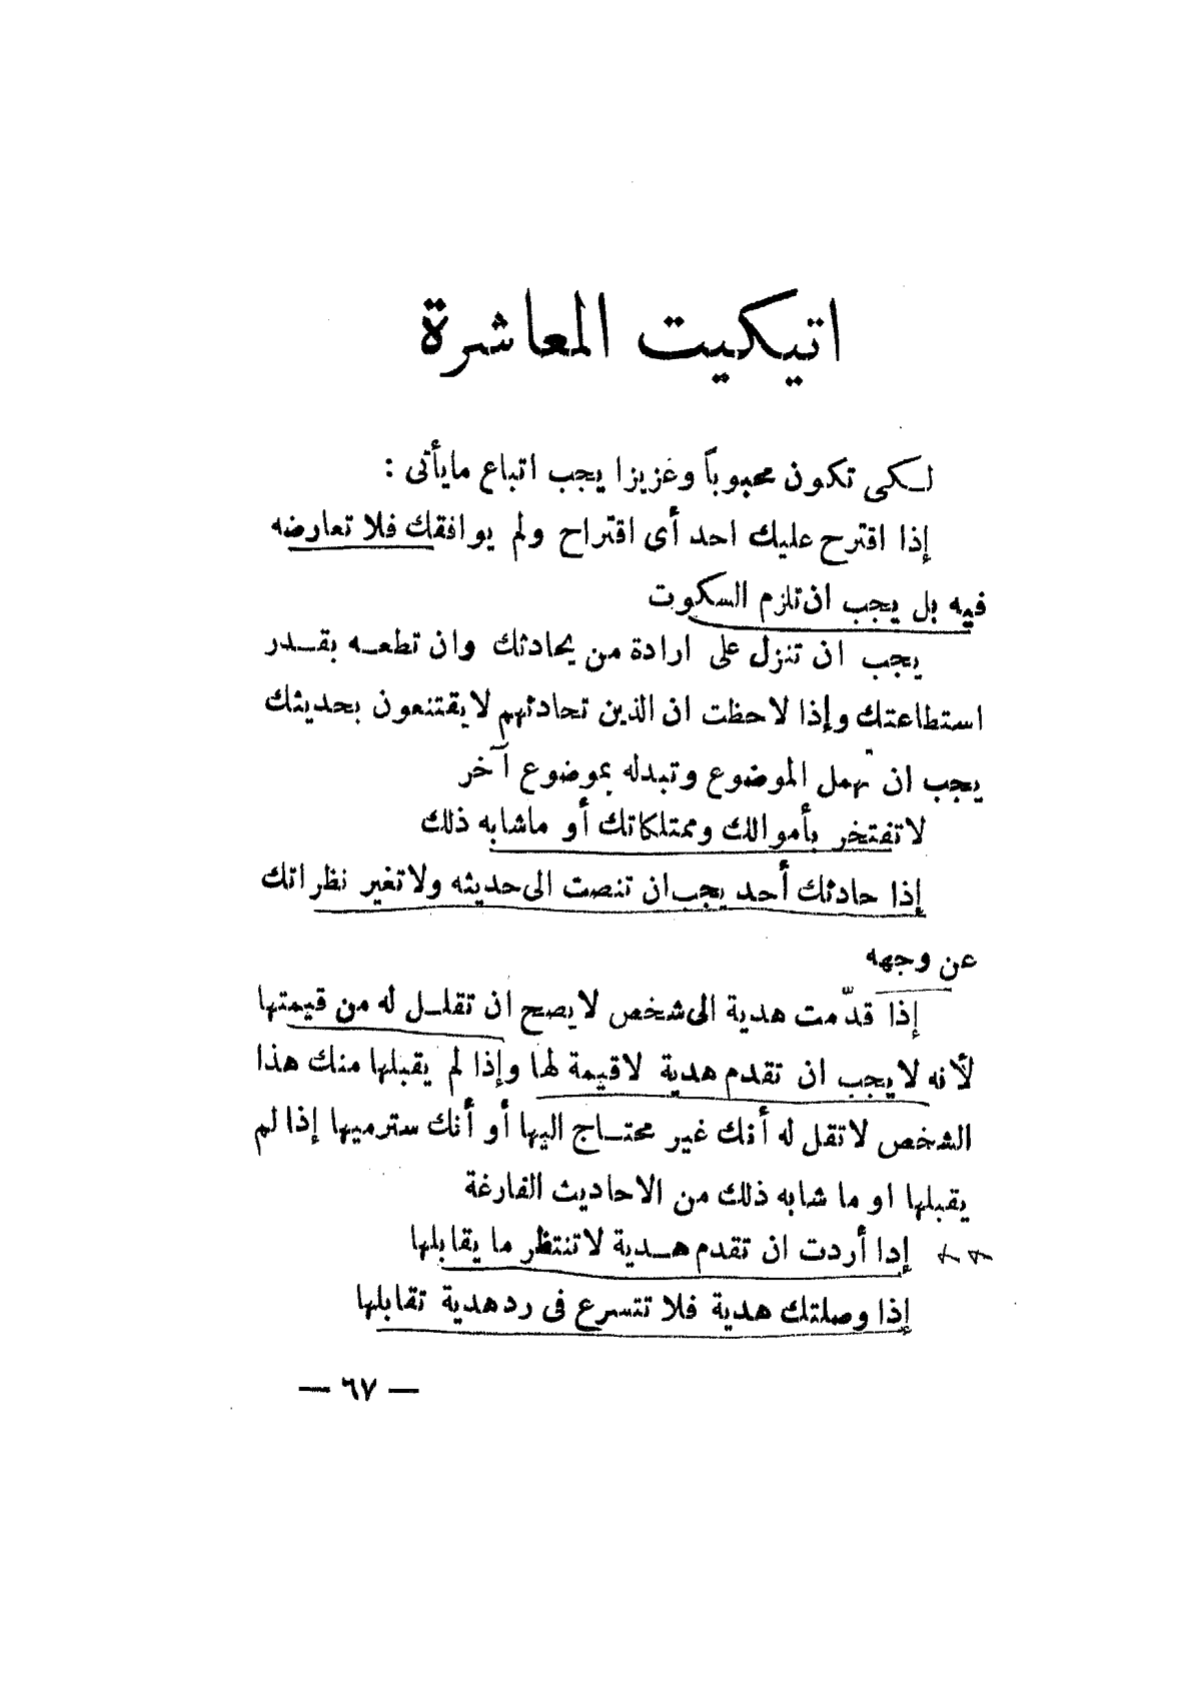 اتيكيت المعاشرة
لكى تكون محبوباً وعزيزا يجب اتباع مايأتى :
إذا اقترح عليك احد أى اقتراح ولم يوافقك فلا تعارضه
فيه بل يجب ان تلزم السكوت
يجب ان تنزل على ارادة من يحادثك وان تطعه بقدر
استطاعتك وإذا لاحظت ان الذين تحادثهم لايقتنعون بحديثك
يجب ان تهمل الموضوع وتبدله بموضوع آخر
لاتفتخر بأموالك وممتلكاتك أو ماشابه ذلك
إذا حادثك أحد يجب ان تنصت الى حديثه ولاتغير نظراتك
عن وجهه
إذا قدّمت هدية الى شخص لايصح ان تقلل له من قيمتها
لأنه لايجب ان تقدم هدية لاقيمة لها وإذا لم يقبلها منك هذا
الشخص لاتقل له أنك غير محتاج اليها أو أنك سترميها إذا لم
يقبلها او ما شابه ذلك من الاحاديث الفارغة
إدا أردت ان تقدم هدية لاتنتظر ما يقابلها
إذا وصلتك هدية فلا تتسرع فى رد هدية تقابلها
— ٦٧ —